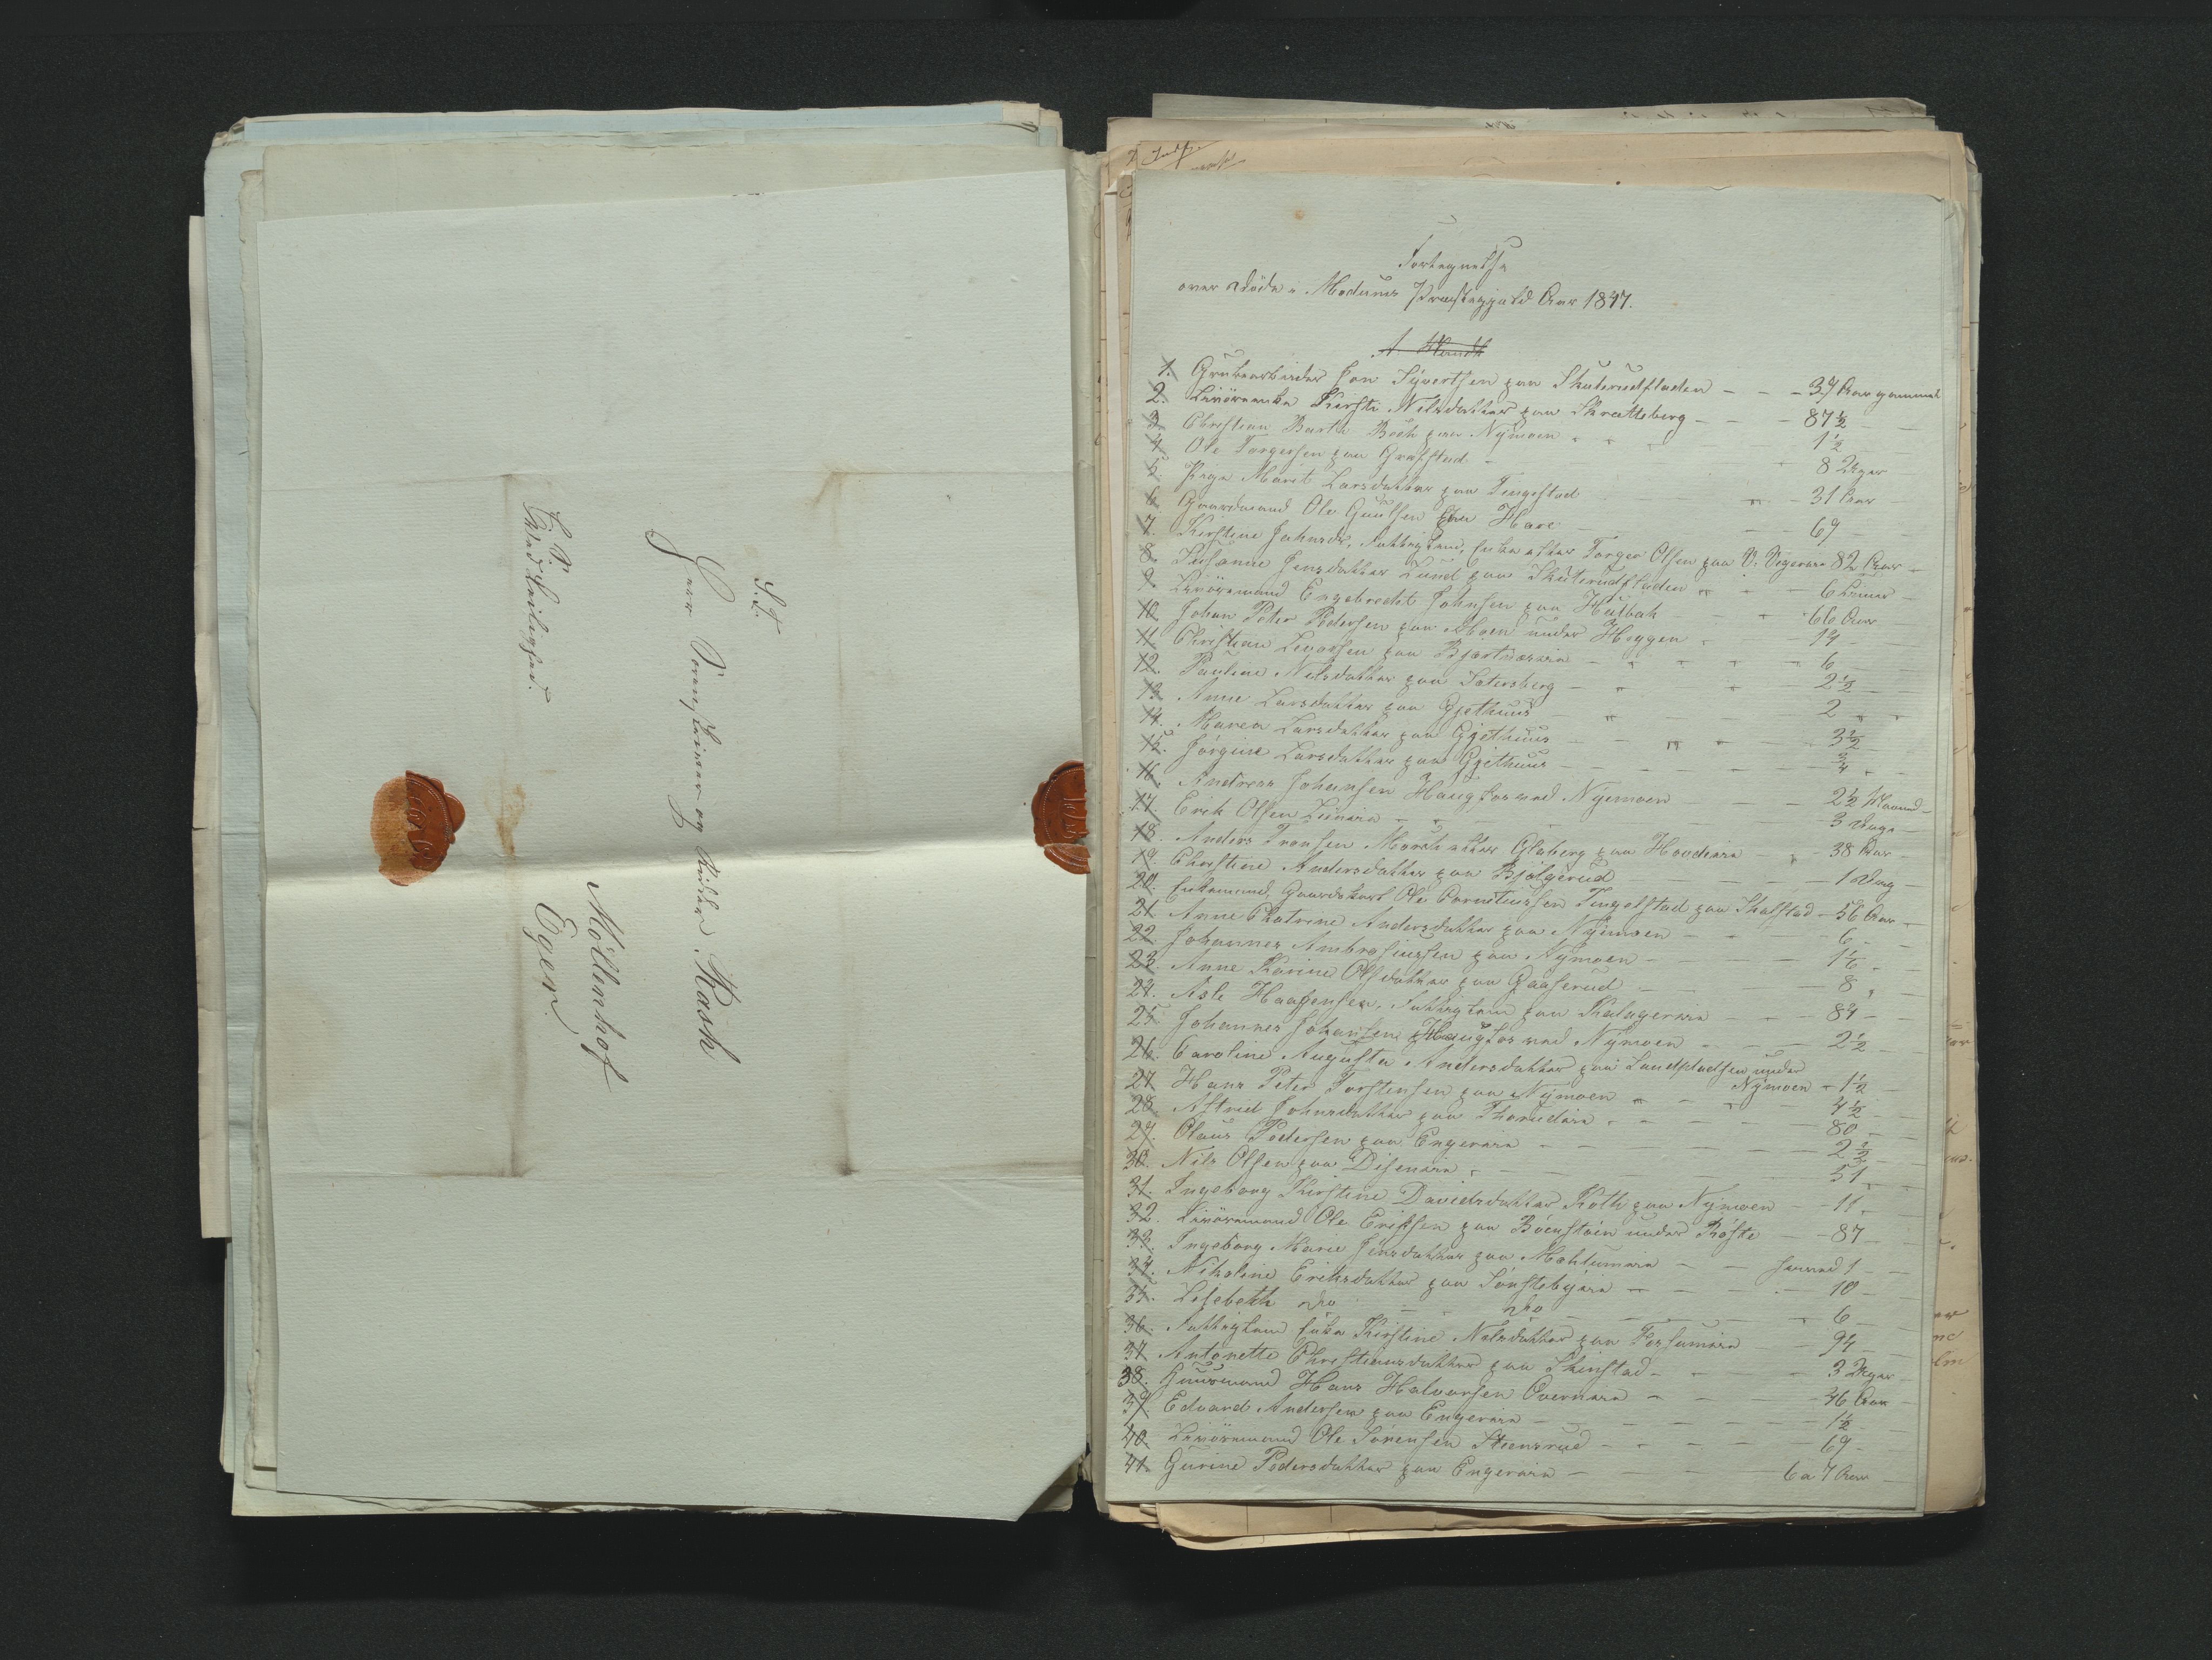 S. T.
Herr Sorenskriver og Ridder Rasch
Möllenhof
Eger.
Ved Leilighed.
Fortegnelse
over Döde i Modums Præstegjeld Aar 1847.
1. Grubearbeider Jon Syvertsen paa Skuterudfladen - - - 37 Aar gammel
2. Livöreenke Kirsti Nilsdatter paa Skrætteberg - - - 87½
3. Christian Barth Bech paa Nymoen - - 1½
4. Ole Torgersen paa Grafstad - - 8 Uger
5. Pige Marit Larsdatter paa Tingelstad - - 31 Aar
6. Gaardmand Ole Guulsen paa Hære - - 69 -
7. Kirstine Johnsdr., Fattiglem, Enke efter Torger Olsen paa V. 82 Aar -
8. Susanne Jensdatter Lund paa Skuterudfladen - - - 6 Timer -
9. Livöremand Engebrecht Johnsen paa Hulbak - - 66 Aar
10. Johan Peter Pedersen paa Moen under Heggen - - 14 -
11. Christian Levorsen paa - - - 6 -
12. Pauline Nilsdatter paa Sætersberg - - - 2½ -
13. Anne Larsdatter paa Gjethuus - - 2 - -
14. Maren Larsdatter paa Gjethuus - - - 3½
15. Jörgine Larsdatter paa Gjethuus - - - - ¾ - -
16. Andreas Johansen Haugfos ved Nymoen - - 2½ Maaned -
17. Erik Olsen - - - 3 Dage -
18. Anders Tronsen Mörch efter Glaberg paa - - 38 Aar -
19. Christine Andersdatter paa Bjölgerud - - - 1 Dag -
20. Enkemand, Gaardskarl Ole Corneliussen Tingelstad paa Skalstad - 56 Aar -
21. Anne Chatrine Andersdatter paa Nymoen - - - 6 - -
22. Johannes Ambrosiussen paa Nymoen - - - - 1⅙ -
23. Anne Karine Olsdatter paa Gaaserud - - - 8 - -
24. Asle Haagensen, Fattiglem paa Kalagereie - - - 84 -
25. Johannes Johansen Haugfos ved Nymoen - - - 2½ -
26. Caroline Augusta Andersdatter paa Landpladsen under
Nymoen - 1½ -
27. Hans Peter Torstensen paa Nymoen - - - 4½ -
28. Astrid Johnsdatter paa Thorudeie - - - - 80 -
29. Olaus Pedersen paa Engereie - - - - 2½ -
30. Nils Olsen paa Diseneie - - - - 51 - -
31. Ingeborg Kirstine Davidsdatter Roth paa Nymoen - 11 -
32. Livöremand Ole Eriksen paa under - - 87 -
33. Ingeborg Marie Jensdatter paa - - henved 1 - -
34. Nikoline Eriksdatter paa Sönstebyeie - - - 10 -
35. Lisebeth do - - do - - - 6 -
36. Fattiglem Enke Kirstine Nilsdatter paa - - 94 -
37. Antonette Christiansdatter paa Skinstad - - - 3 Uger -
38. Huusmand Hans Halvorsen Overneie - - - 36 Aar -
39. Edvard Andersen paa Engereie - - - - 1½
40. Livöremand Ole Sörensen Steensrud - - - - 69 -
41. Gurine Pedersdatter paa Engereie - - - 6 a 7 Aar -